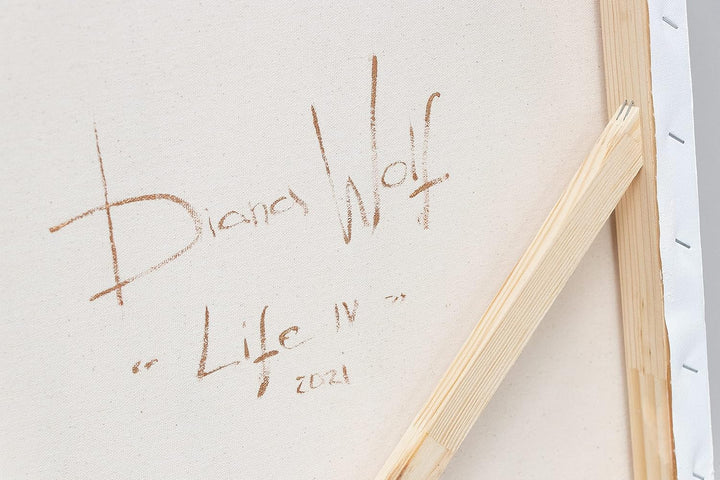 Diana Wolf
"Life IV"
2021